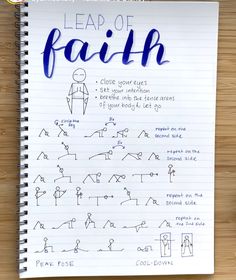 LEAP OF
faith
• Close your eyes
• Set your intention
• breathe into the tense areas
of your body & let go
repeat on the
second side
repeat on the
second side
repeat on the
second side
repeat on
the 2nd side
PEAK POSE
COOL-DOWN